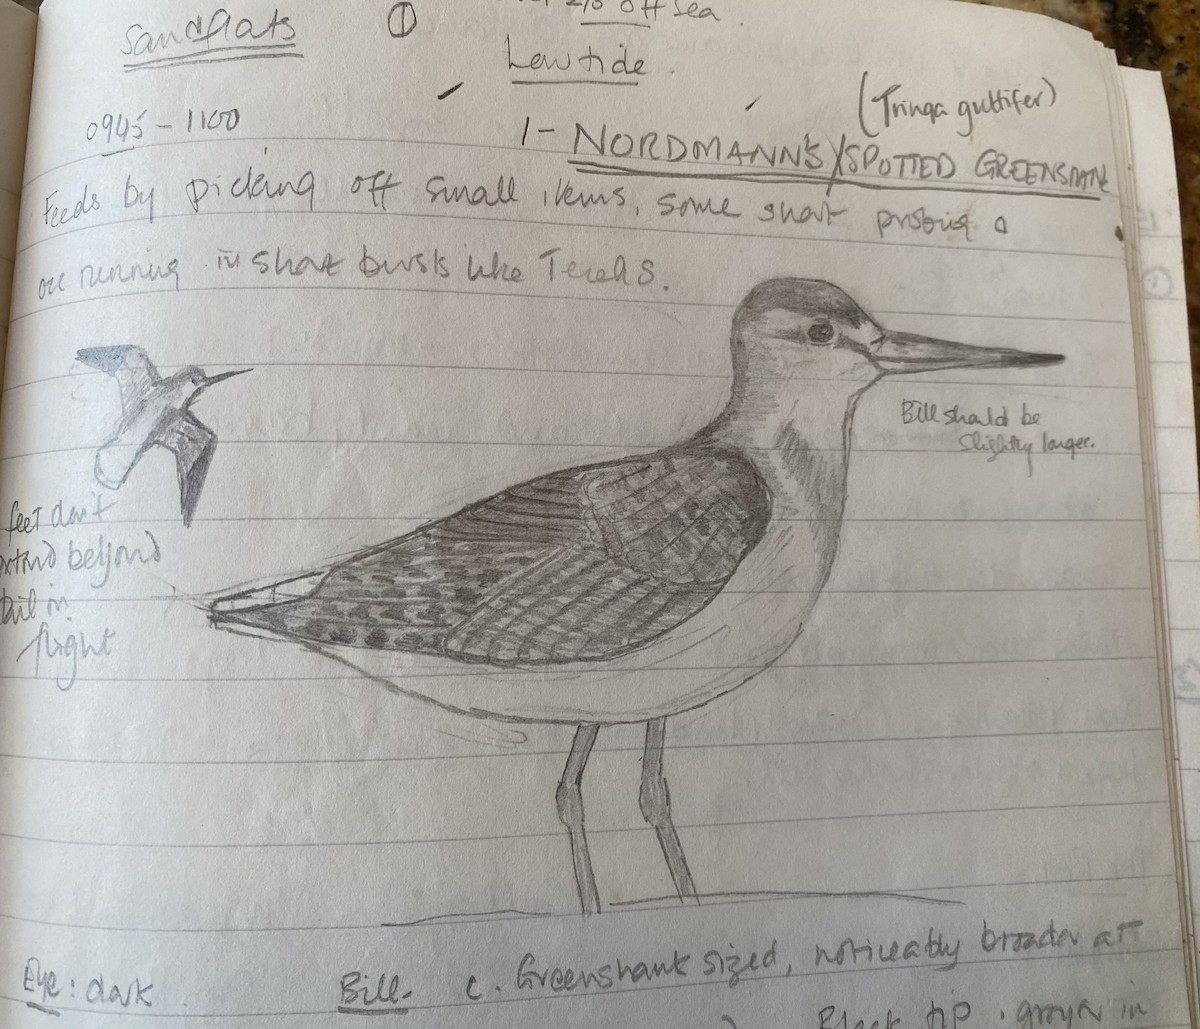 off sea.
Sandflats ①
Low tide.
(Tringa guttifer)
0945 - 1100
1 - NORDMANN'S/SPOTTED GREENSHANK
Feeds by picking off small items, some short probing
running in short bursts like Tereks.
Bill should be
slightly longer.
feet don't
extend beyond
tail in
flight
Eye: dark
Bill- c. Greenshank sized, noticeably broader at
Black tip. in